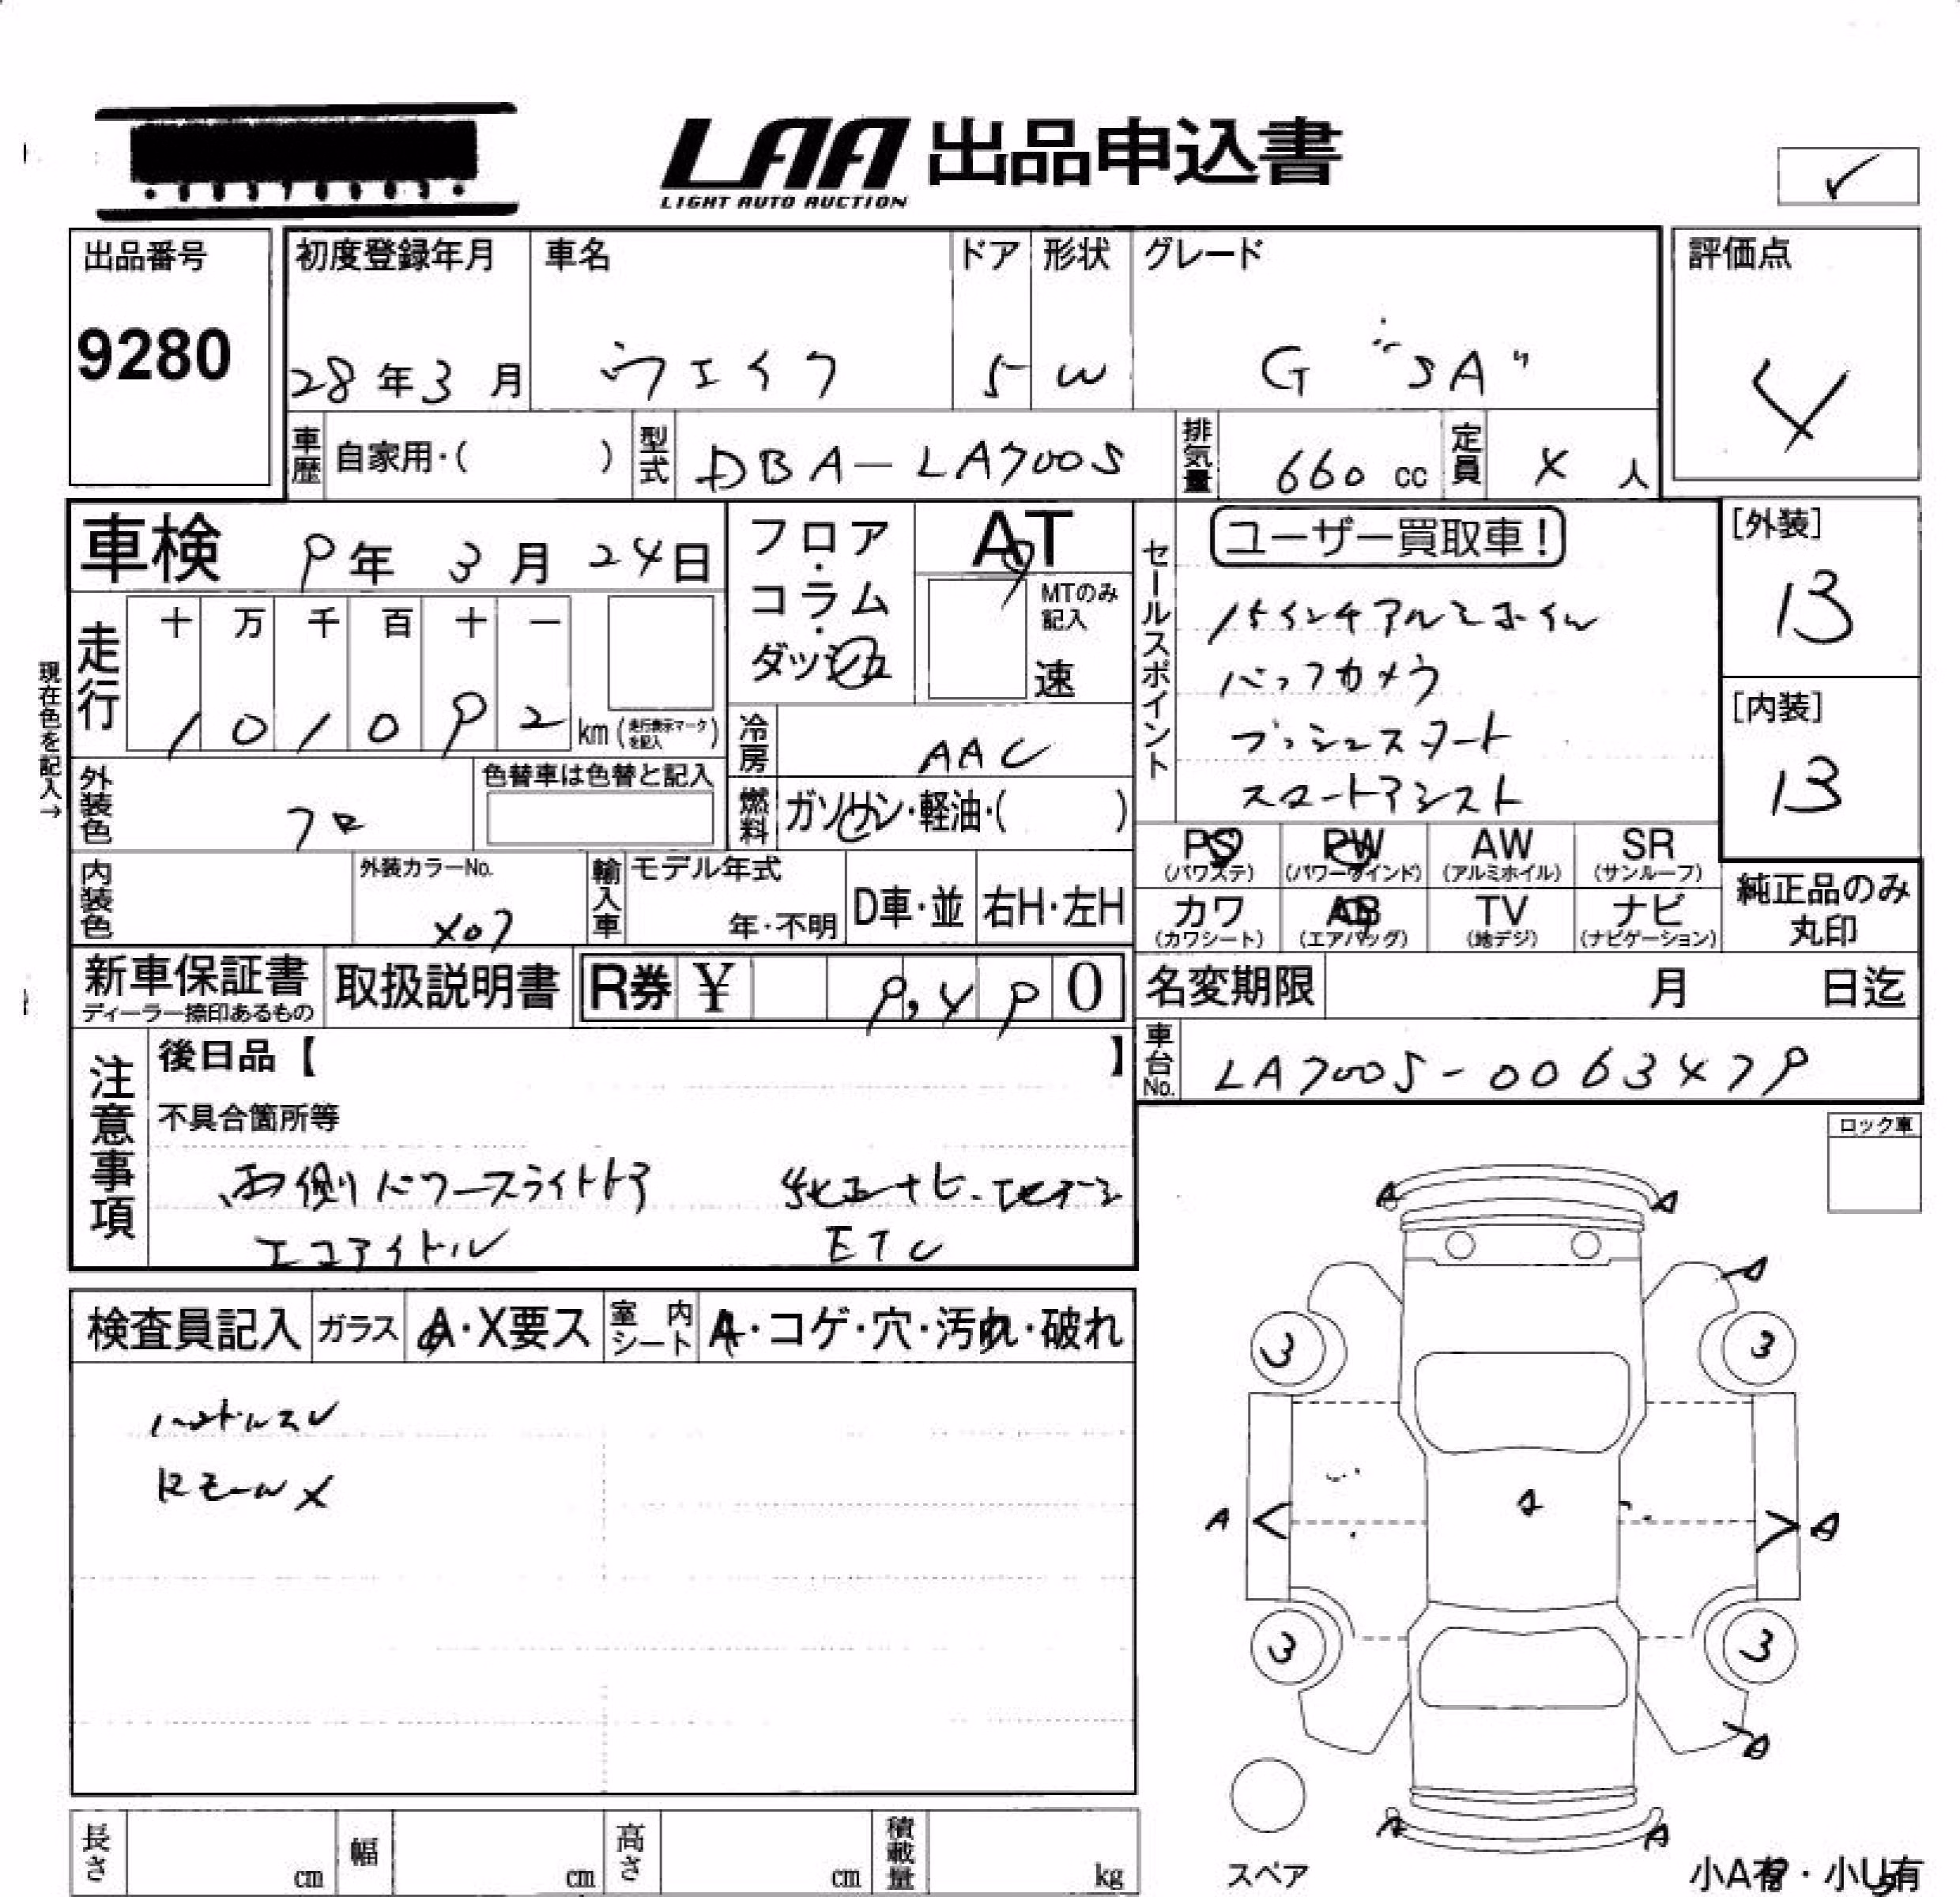 LAA 出品申込書
LIGHT AUTO AUCTION
出品番号
9280
初度登録年月
28年3月
車名
ウェイク
ドア
5
形状
W
グレード
G "SA"
評価点
4
車歴
自家用・( )
型式
DBA-LA700S
排気量
660 cc
定員
4 人
車検
9年 3月 24日
フロア・コラム・ダッシュ
AT
MTのみ記入
速
セールスポイント
ユーザー買取車!
15インチアルミホイル
バックカメラ
プッシュスタート
スマートアシスト
[外装]
13
[内装]
13
現在色を記入→
走行
十 万 千 百 十 一
1 0 1 0 9 2 km (走行表示マークを記入)
冷房
AAC
燃料
ガソリン・軽油・( )
外装色
クロ
色替車は色替と記入
内装色
外装カラーNo.
X07
輸入車
モデル年式
年・不明
D車・並
右H・左H
PS (パワステ)
PW (パワーウインド)
AW (アルミホイル)
SR (サンルーフ)
カワ (カワシート)
AB (エアバッグ)
TV (地デジ)
ナビ (ナビゲーション)
純正品のみ丸印
新車保証書
ディーラー捺印あるもの
取扱説明書
R券 ¥ 9,490
名変期限 月 日迄
車台No.
LA700S-0063479
注意事項
後日品【 】
不具合箇所等
両側パワースライドドア
純正ナビ.地デジ
エコアイドル
ETC
ロック車
検査員記入
ガラス
A・X要ス
室内シート
A・コゲ・穴・汚れ・破れ
ハンドルスレ
ドモールX
A A
A
3 3
A A
3 3
A
A A
長さ cm
幅 cm
高さ cm
積載量 kg
スペア
小A有・小U有